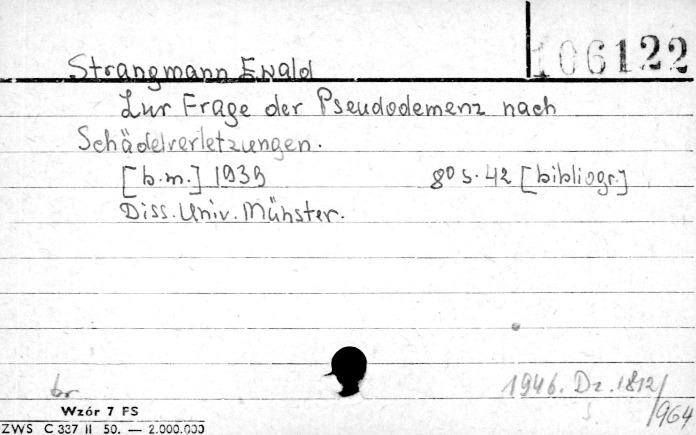 106122
Strangmann Ewald
Zur Frage der Pseudodemenz nach
Schädelverletzungen.
[b.m.] 1939 8° s. 42 [bibliogr.]
Diss. Univ. Münster.
br
1946. Dz. 1812/
/964
Wzór 7 FS
ZWS C 337 II 50. — 2.000.000